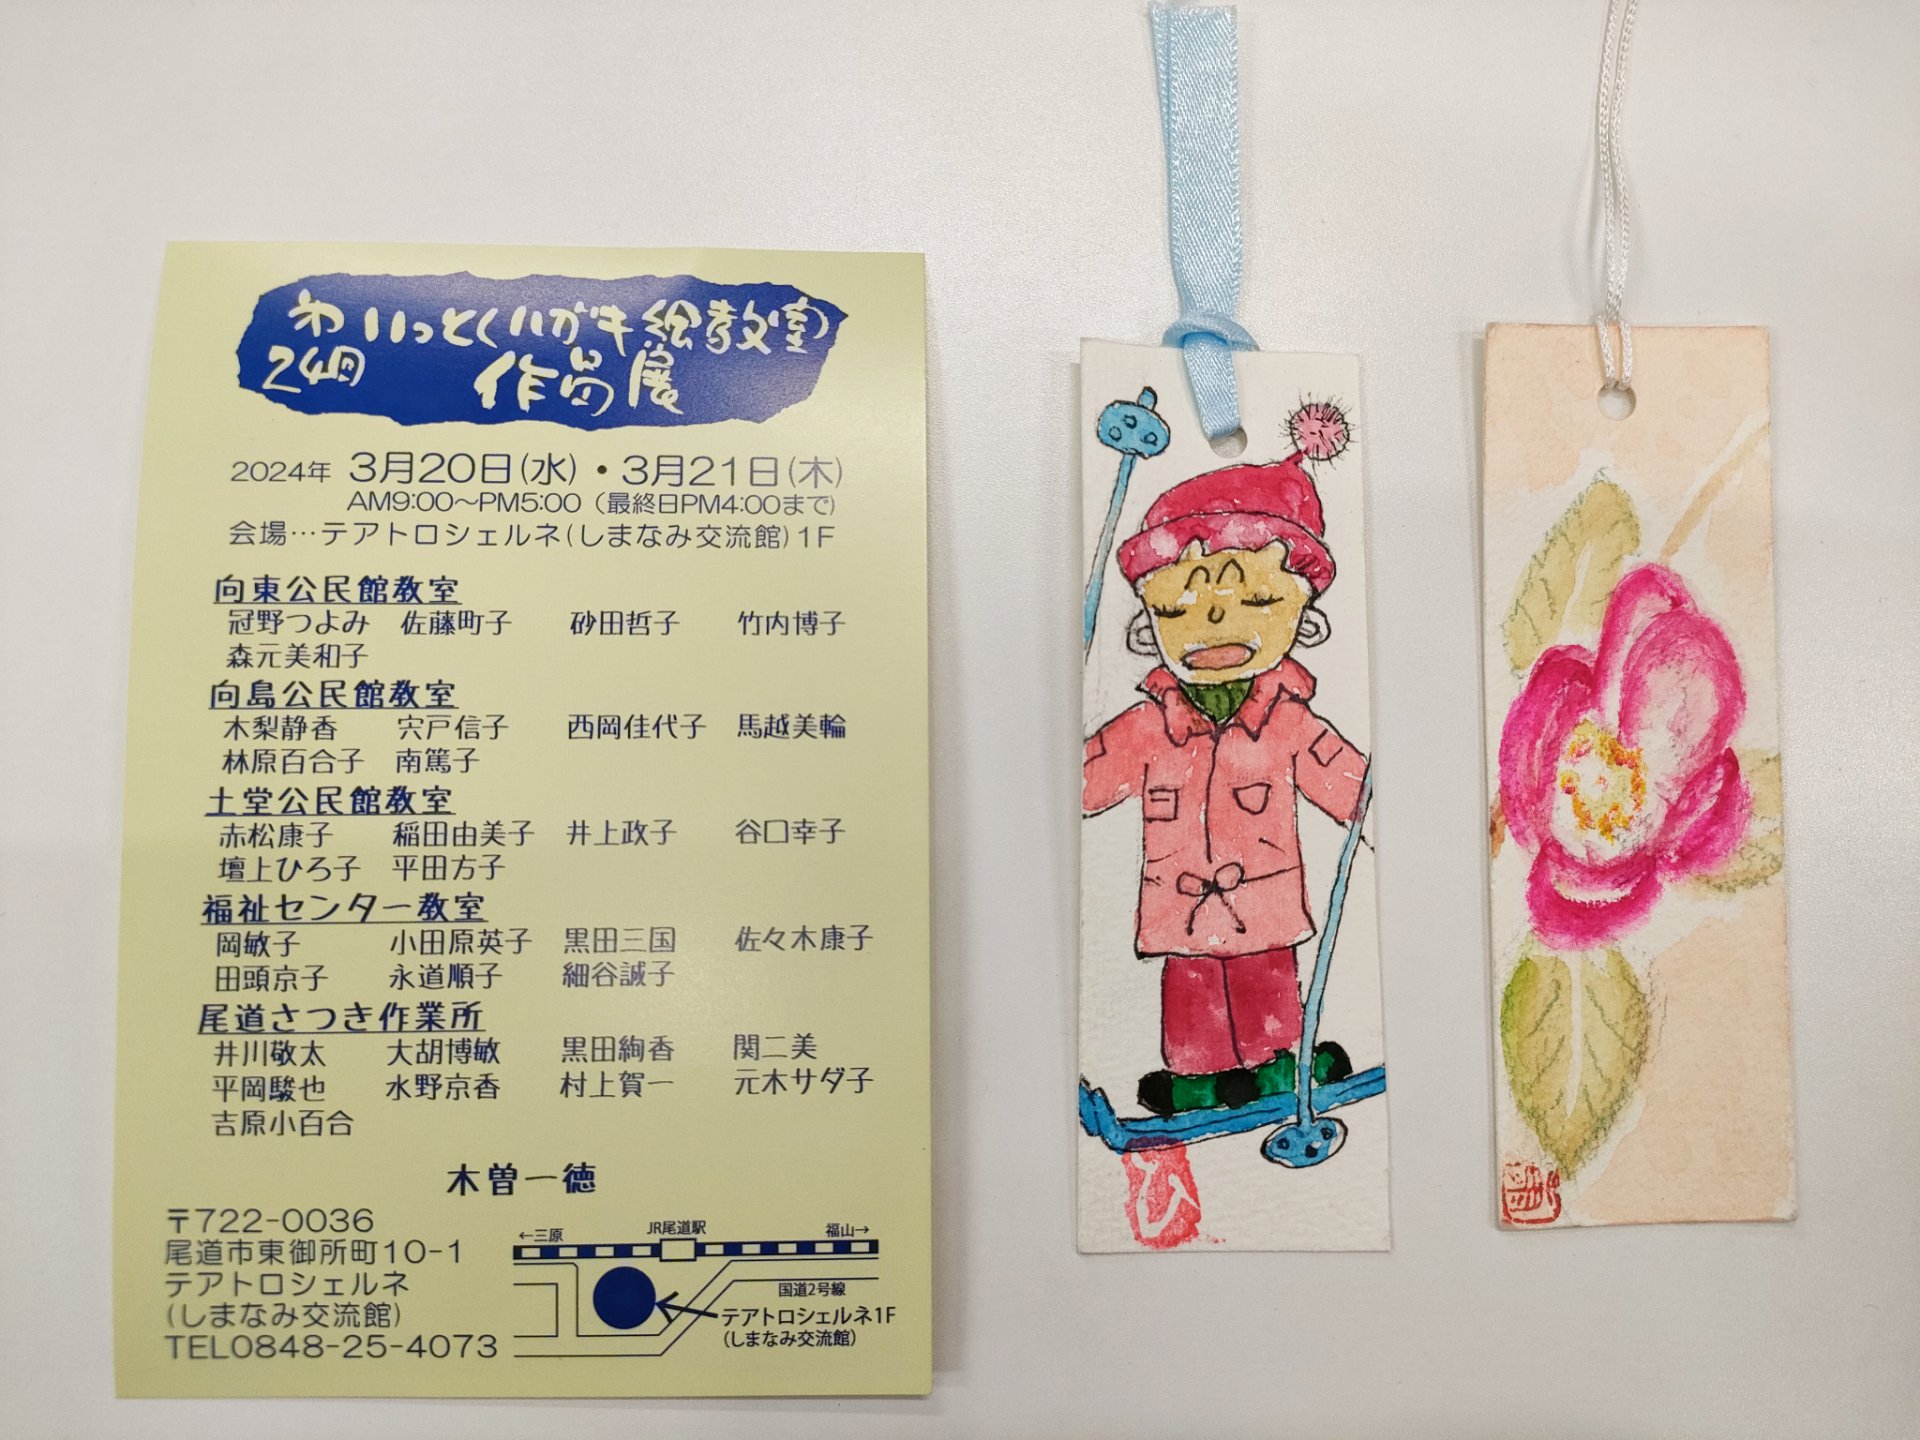 第24回 いっとくハガキ絵教室
作品展
2024年 3月20日(水)・3月21日(木)
AM9:00〜PM5:00（最終日PM4:00まで）
会場…テアトロシェルネ(しまなみ交流館)1F
向東公民館教室
冠野つよみ 佐藤町子 砂田哲子 竹内博子
森元美和子
向島公民館教室
木梨静香 宍戸信子 西岡佳代子 馬越美輪
林原百合子 南篤子
土堂公民館教室
赤松康子 稲田由美子 井上政子 谷口幸子
壇上ひろ子 平田方子
福祉センター教室
岡敏子 小田原英子 黒田三国 佐々木康子
田頭京子 永道順子 細谷誠子
尾道さつき作業所
井川敬太 大胡博敏 黒田絢香 関二美
平岡駿也 水野京香 村上賀一 元木サダ子
吉原小百合
木曽一徳
〒722-0036
尾道市東御所町10-1
テアトロシェルネ
(しまなみ交流館)
TEL0848-25-4073
←三原 JR尾道駅 福山→
国道2号線
テアトロシェルネ1F
(しまなみ交流館)
ひ